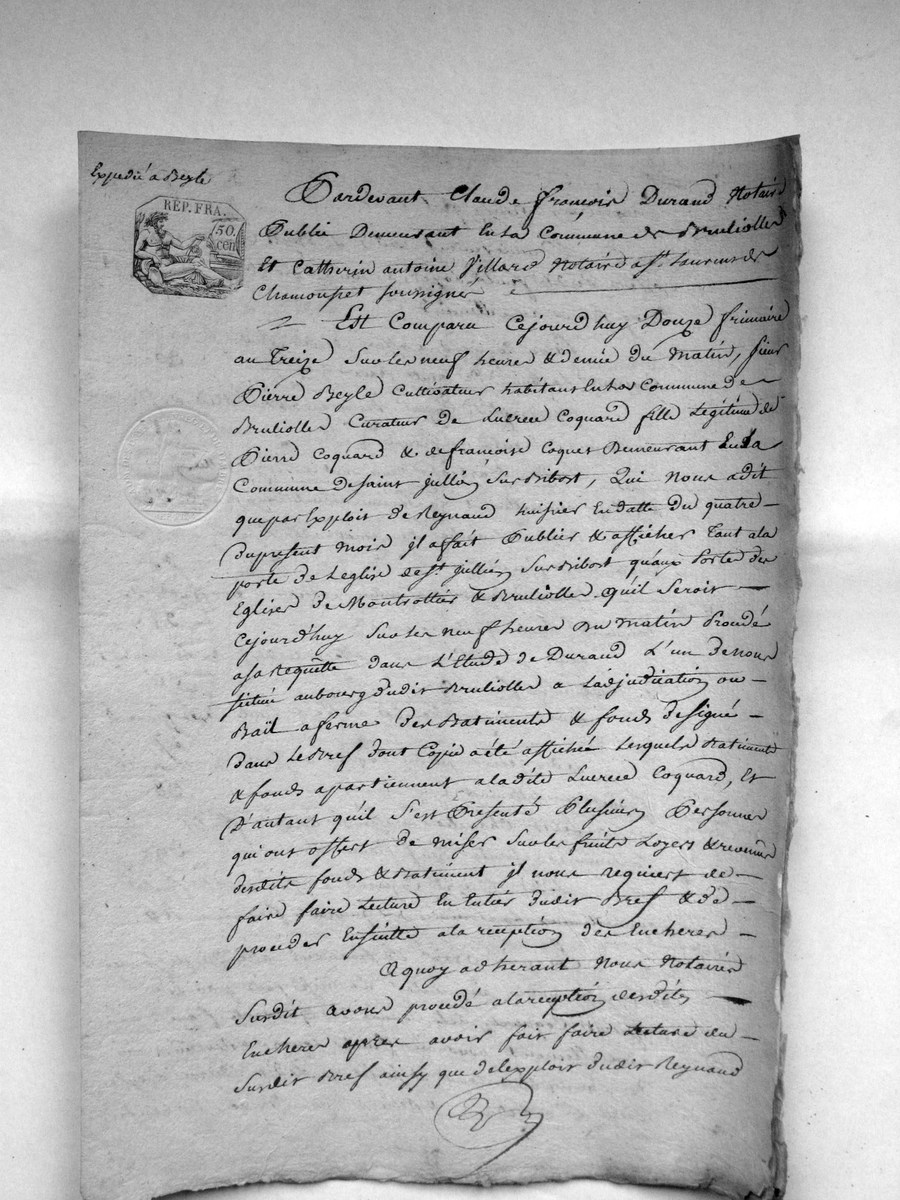 Expedié a Beyle
RÉP. FRA.
50
cen
Pardevant Claude françois Durand Notaire
Public Demeurant En la Commune de Brulliolles
Et Catherin antoine Villard Notaire a st Laurens de
Chamousset soussignés
Est Comparu Cejourd'huy Douze frimaire
an Treize Sur les neuf heure & demie du Matin, sieur
Pierre Beyle Cultivateur habitant En la Commune de
Bruliolle Curateur de Lucrece Coquard fille Legitime de
Pierre Coquard & de francoise Coquet Demeurant En la
Commune de Saint jullien Sur Bibost, Qui Nous a dit
que par Exploit de Reynaud huissier En datte du quatre
du present mois jl a fait Publier & afficher Tant a la
porte de Leglise de st jullien Sur Bibost qu'aux Porte des
Eglises de Montrottier & Bruliolle qu'il Seroit
Cejourd'huy Sur les Neuf heures du Matin Procedé
a sa Requêtte dans L'Etude de Durand L'un de nous
située au bourg dudit Bruliolles a Ladjudication ou
Bail a ferme des Batiments & fonds designé
dans Le Bref dont Copie a été affichée Lesquels Batiments
& fonds apartiennent a ladite Lucrece Coquard, Et
D'autant qu'il S'est Presenté Plusieurs Personnes
qui ont offert de miser Sur les fruits Loyers & revenus
desdits fonds & Batiment jl nous requiert de
faire faire Lecture En Entier dudit Bref & de
proceder Ensuitte a la reception des Encheres
A quoy adherant Nous Notaires
Susdit avons procedé a la reception desdites
Encheres apres avoir fait faire Lecture du
Susdit Bref ainsy que de l'exploit dudit Reynaud